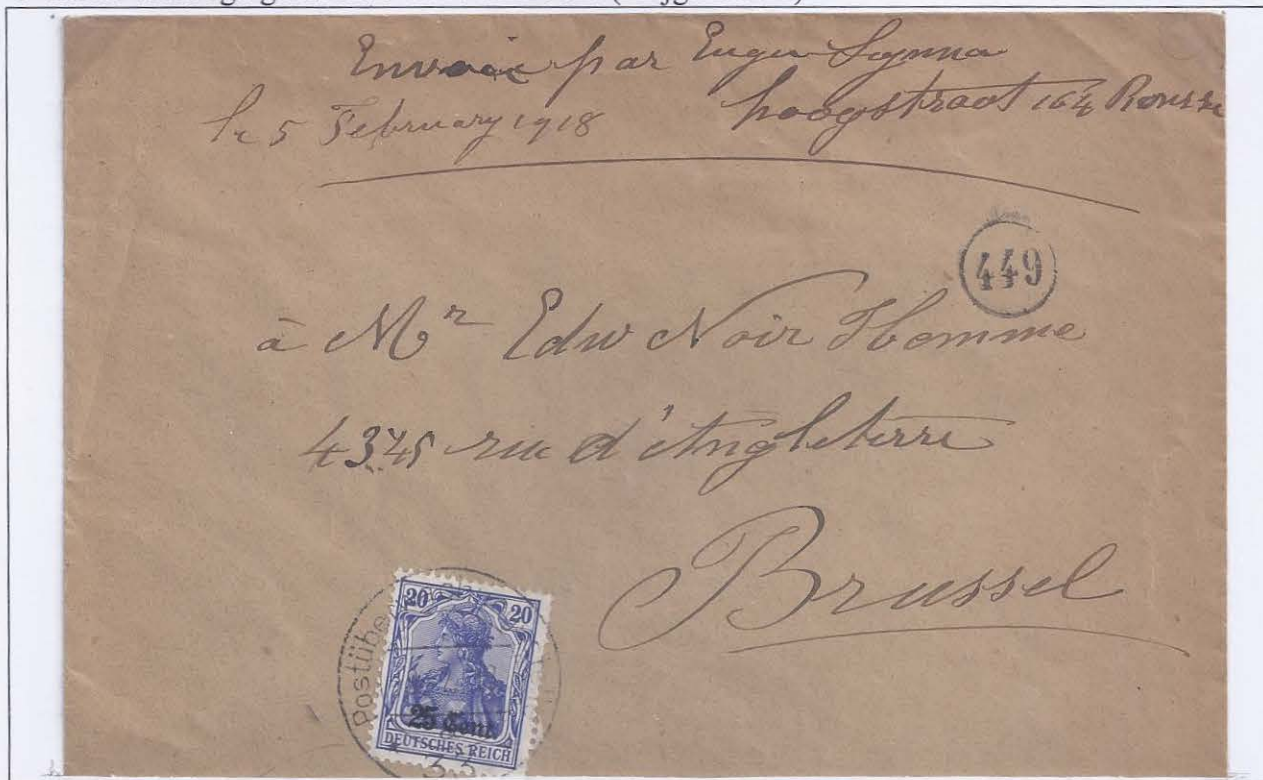 Envoie par Eugen
le 5 February 1918 hoogstraat 164
449
à Mr Edw Noir Homme
4345 rue d'Angleterre
Brussel
Postübe
20 20
25 Cent
DEUTSCHES REICH
33